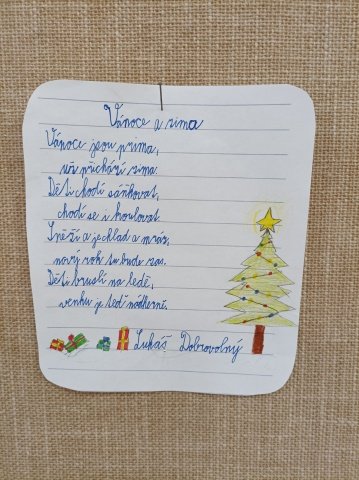 Vánoce a zima
Vánoce jsou prima,
už přichází zima.
Děti chodí sáňkovat,
chodí se i koulovat.
Sněží a je chlad a mráz,
nový rok tu bude zas.
Děti bruslí na ledě,
venku je teď nádherně.
Lukáš Dobrovolný